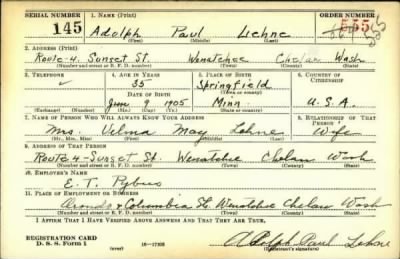 SERIAL NUMBER
1. NAME (Print)
ORDER NUMBER
145
Adolph Paul Lehne
(First) (Middle) (Last)
2. ADDRESS (Print)
Route-4. Sunset St. Wenatchee Chelan Wash
(Number and street or R. F. D. number) (Town) (County) (State)
3. TELEPHONE
4. AGE IN YEARS
5. PLACE OF BIRTH
6. COUNTRY OF CITIZENSHIP
35
Springfield
(Town or county)
DATE OF BIRTH
June 9 1905
Minn.
U.S.A.
(Exchange) (Number)
(Mo.) (Day) (Yr.)
(State or country)
7. NAME OF PERSON WHO WILL ALWAYS KNOW YOUR ADDRESS
8. RELATIONSHIP OF THAT PERSON
Mrs. Velma May Lehne Wife
(Mr., Mrs., Miss) (First) (Middle) (Last)
9. ADDRESS OF THAT PERSON
Route 4-Sunset St. Wenatchee Chelan Wash
(Number and street or R. F. D. number) (Town) (County) (State)
10. EMPLOYER'S NAME
E. T. Pybus
11. PLACE OF EMPLOYMENT OR BUSINESS
Orondo & Columbia St. Wenatchee Chelan Wash
(Number and street or R. F. D. number) (Town) (County) (State)
I AFFIRM THAT I HAVE VERIFIED ABOVE ANSWERS AND THAT THEY ARE TRUE.
REGISTRATION CARD
D. S. S. Form 1
(over)
Adolph Paul Lehne
(Registrant's signature)